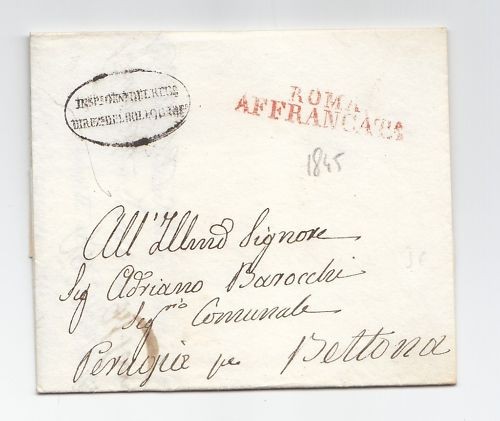 ROMA
AFFRANCATA
1845
All'Illmo Signore
Sig Adriano Barocchi
Segrio Comunale
Perugia pe Bettona